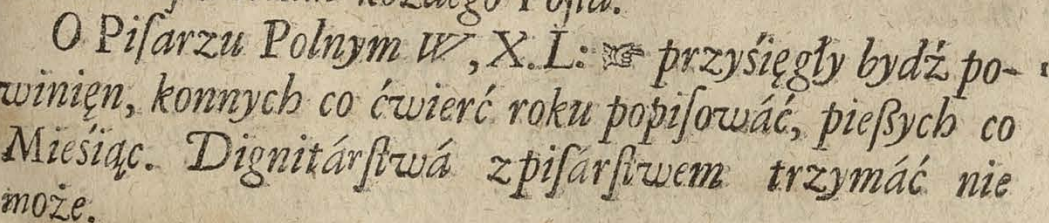 O Piſarzu Polnym W, X. L: ☞ przyśięgły bydź po-
winięn, konnych co ćwierć roku popiſowáć, pieſzych co
Mieśiąc. Dignitárſtwá z piſárſtwem trzymáć nie
może.